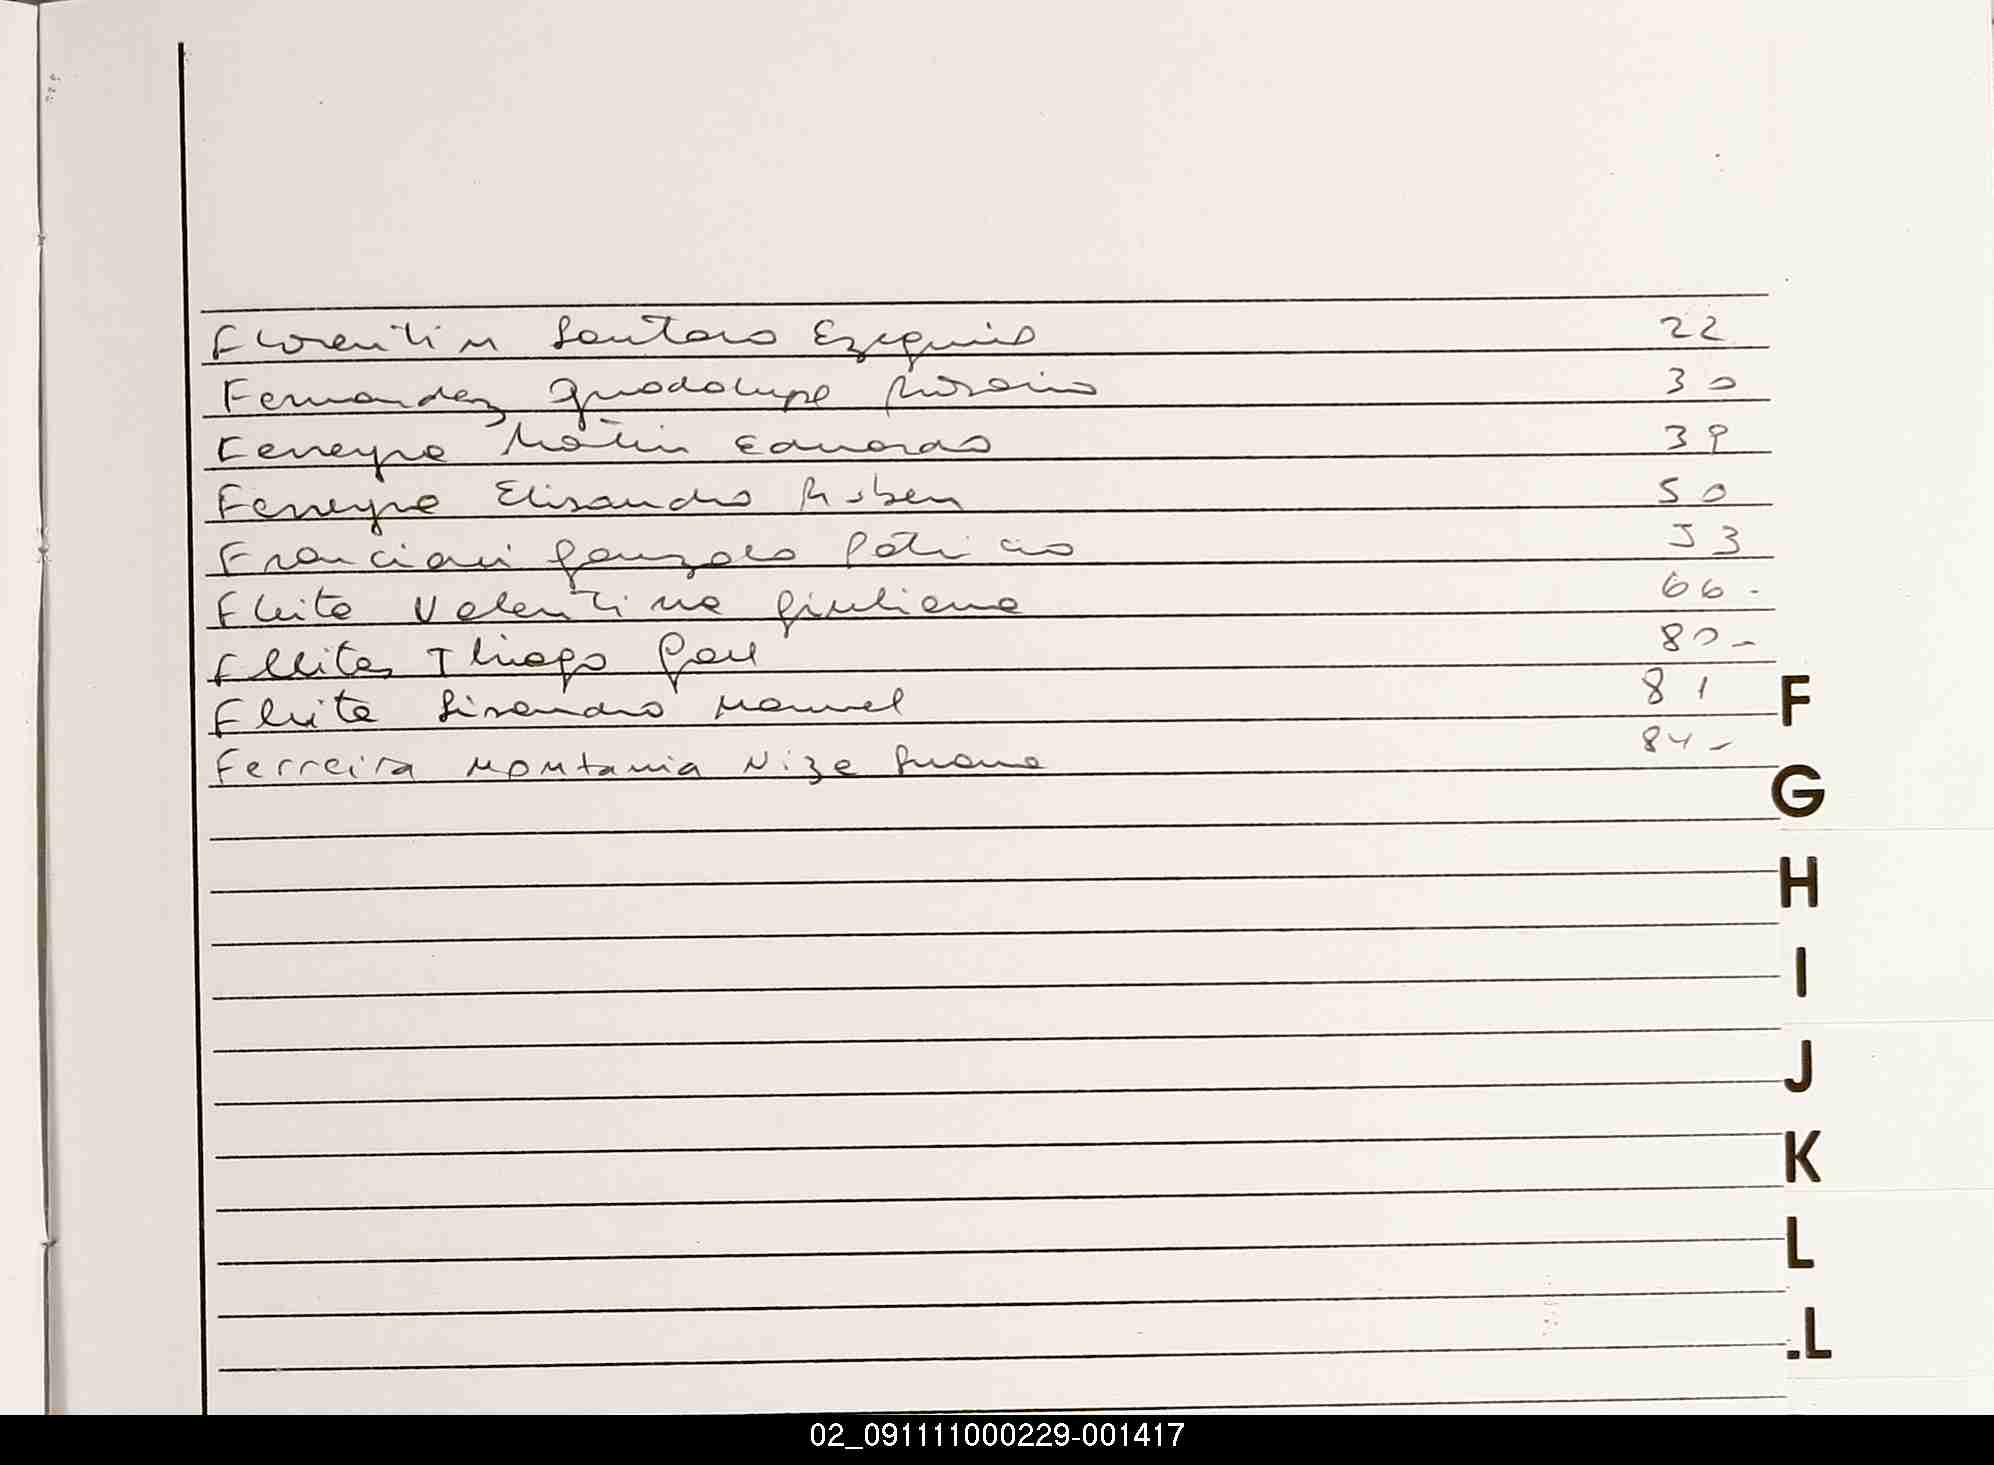 Florentin Lautaro Ezequiel 22
Fernandez Guadalupe Rosario 30
Ferreyra Matin Eduardo 39
Ferreyra Elisandro Ruben 50
Franciani Gonzalo Patricio 53
Fleita Valentina Giuliana 66 -
Fleitas Thiago 80 -
Fleita Lisandro Manuel 81
Ferreira Montania Nize Luana 84 -
F
G
H
I
J
K
L
.L
02_091111000229-001417